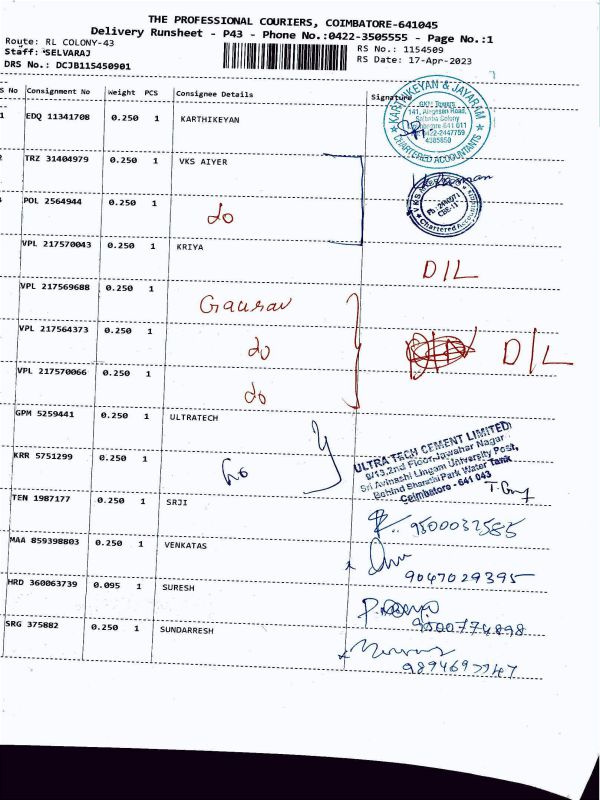 THE PROFESSIONAL COURIERS, COIMBATORE-641045
Delivery Runsheet - P43 - Phone No.:0422-3505555 - Page No.:1
Route: RL COLONY-43
Staff: SELVARAJ
DRS No.: DCJB115450901
RS No.: 1154509
RS Date: 17-Apr-2023
S No Consignment No Weight PCS Consignee Details Signature
1 EDQ 11341708 0.250 1 KARTHIKEYAN
KARTHIKEYAN & JAYARAM
CHARTERED ACCOUNTANTS
TRZ 31404979 0.250 1 VKS AIYER
POL 2564944 0.250 1 do
VPL 217570043 0.250 1 KRIYA D/L
VPL 217569688 0.250 1 Gaurav
VPL 217564373 0.250 1 do D/L
VPL 217570066 0.250 1 do
GPM 5259441 0.250 1 ULTRATECH
ULTRA TECH CEMENT LIMITED
9/13,2nd Floor,Jawahar Nagar
Sri Avinashi Lingam University Post,
Behind Sharathi Park Water Tank
Coimbatore - 641 043
KRR 5751299 0.250 1 do
TEN 1987177 0.250 1 SRJI 9500032585
MAA 859398803 0.250 1 VENKATAS 9047029395
HRD 360063739 0.095 1 SURESH
SRG 375882 0.250 1 SUNDARRESH